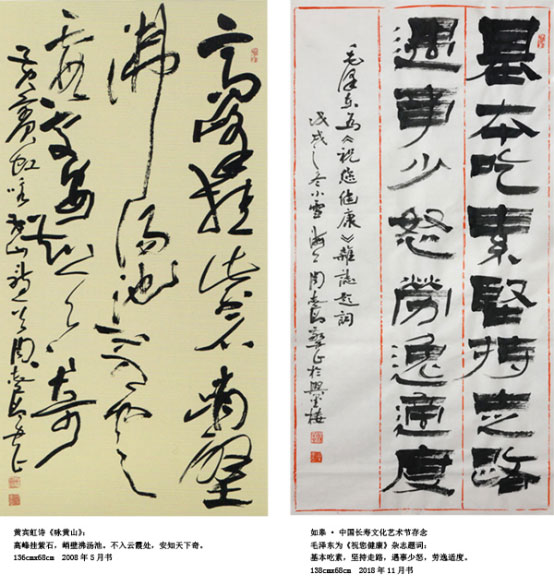 高峰挂紫石峭壁
沸汤池不入云
霞处安知天下奇
黄宾虹咏黄山诗一首周志高书
基本吃素堅持走路
遇事少怒勞逸適度
毛泽东为《祝您健康》雜誌題詞
戊戌之冬小雪海上周志高
黄宾虹诗《咏黄山》：
高峰挂紫石，峭壁沸汤池。不入云霞处，安知天下奇。
136cmx68cm 2008年5月书
如皋·中国长寿文化艺术节存念
毛泽东为《祝您健康》杂志题词：
基本吃素，坚持走路，遇事少怒，劳逸适度。
138cmx68cm 2018年11月书